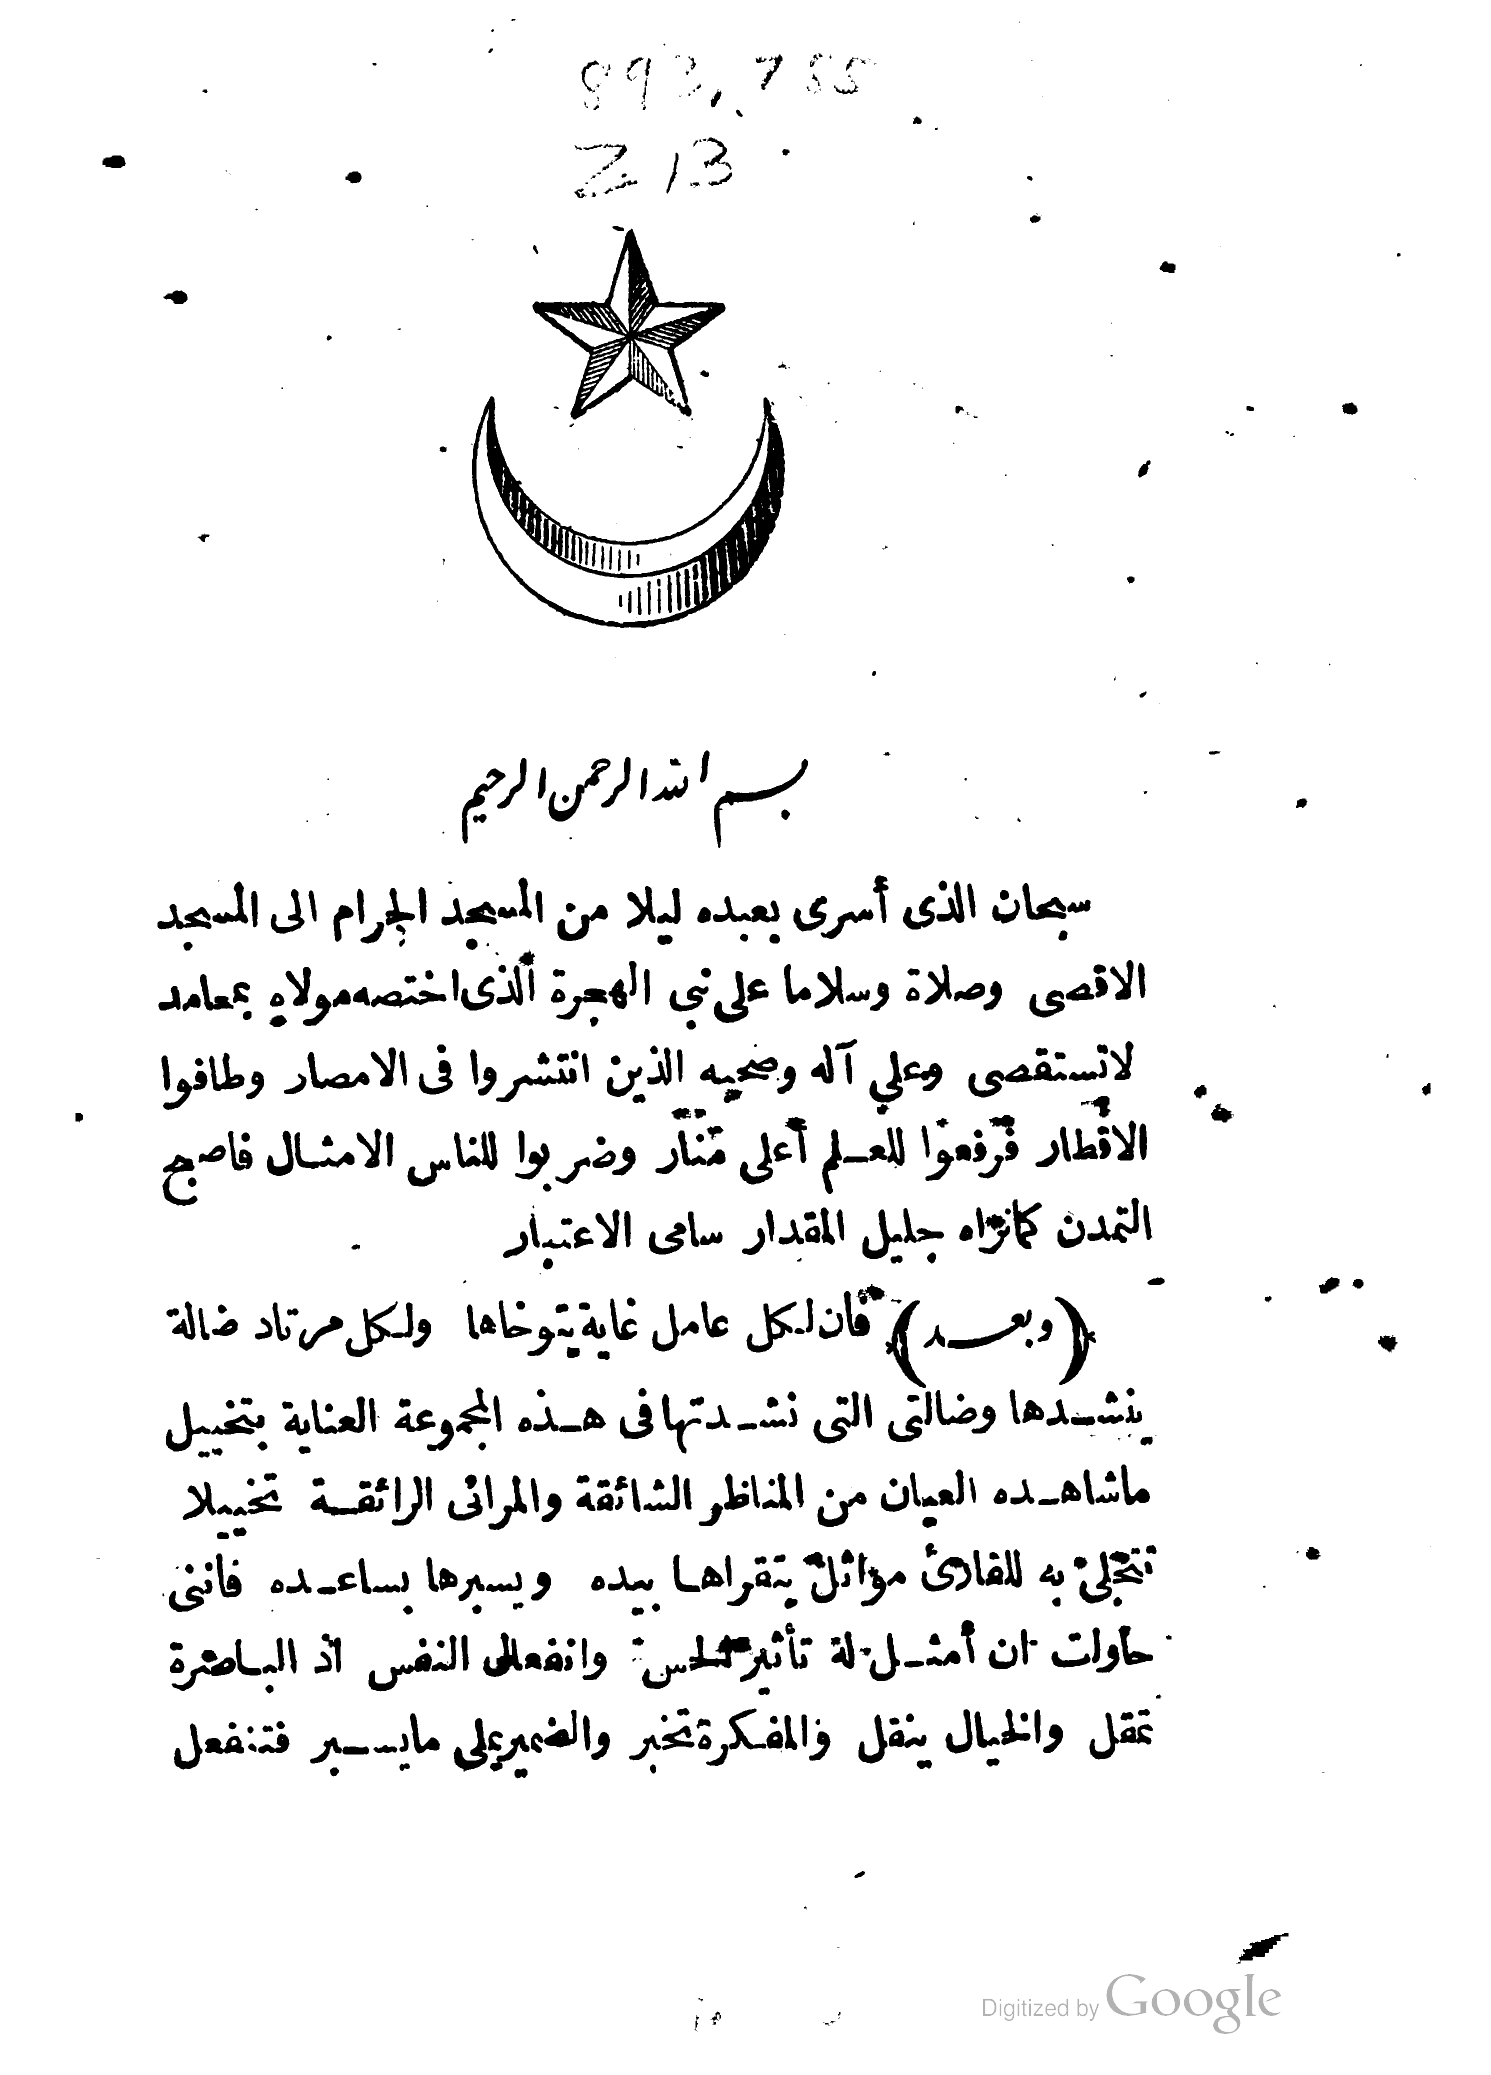 893.785
Z13
بسم الله الرحمن الرحيم
سبحان الذى أسرى بعبده ليلا من المسجد الحرام الى المسجد
الاقصى وصلاة وسلاما على نبى الهجرة الذى اختصه مولاه بمحامد
لاتستقصى وعلى آله وصحبه الذين انتشروا فى الامصار وطافوا
الاقطار فرفعوا للعلم أعلى منار وضربوا للناس الامثال فاصبح
التمدن كمانراه جليل المقدار سامى الاعتبار
﴿ وبعد ﴾ فان لكل عامل غاية يتوخاها ولكل مرتاد ضالة
ينشدها وضالتى التى نشدتها فى هذه المجموعة العناية بتخييل
ماشاهده العيان من المناظر الشائقة والمرائى الرائقة تخييلا
تتجلى به للقارئ يتقراها بيده ويسبرها بساعده فاننى
حاولت ان أمثل له تأثير الحس وانفعال النفس اذ الباصرة
تمقل والخيال ينقل والمفكرة تخبر والضمير يملى مايسبر فتنفعل
Digitized by Google